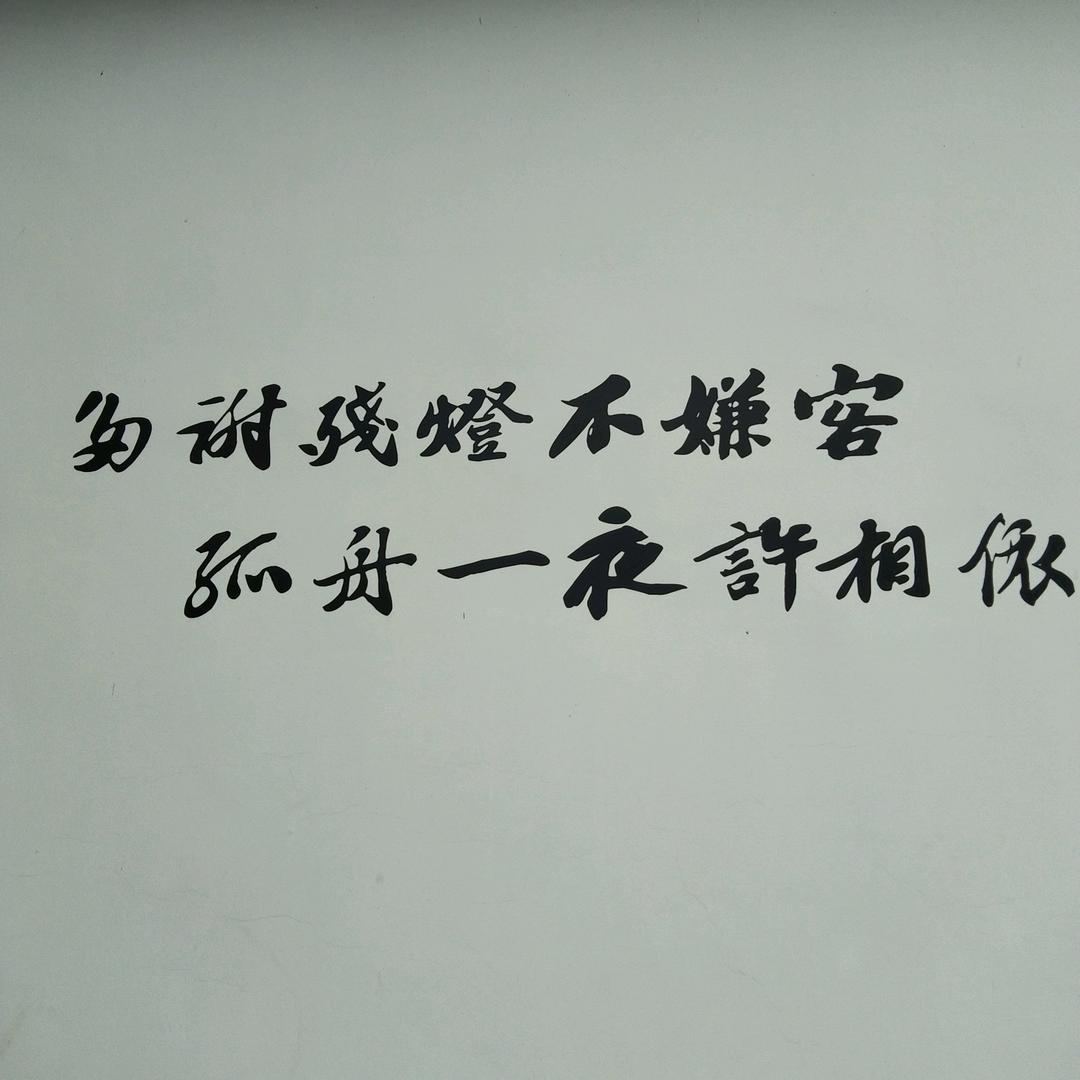 多謝殘燈不嫌客
孤舟一夜許相依